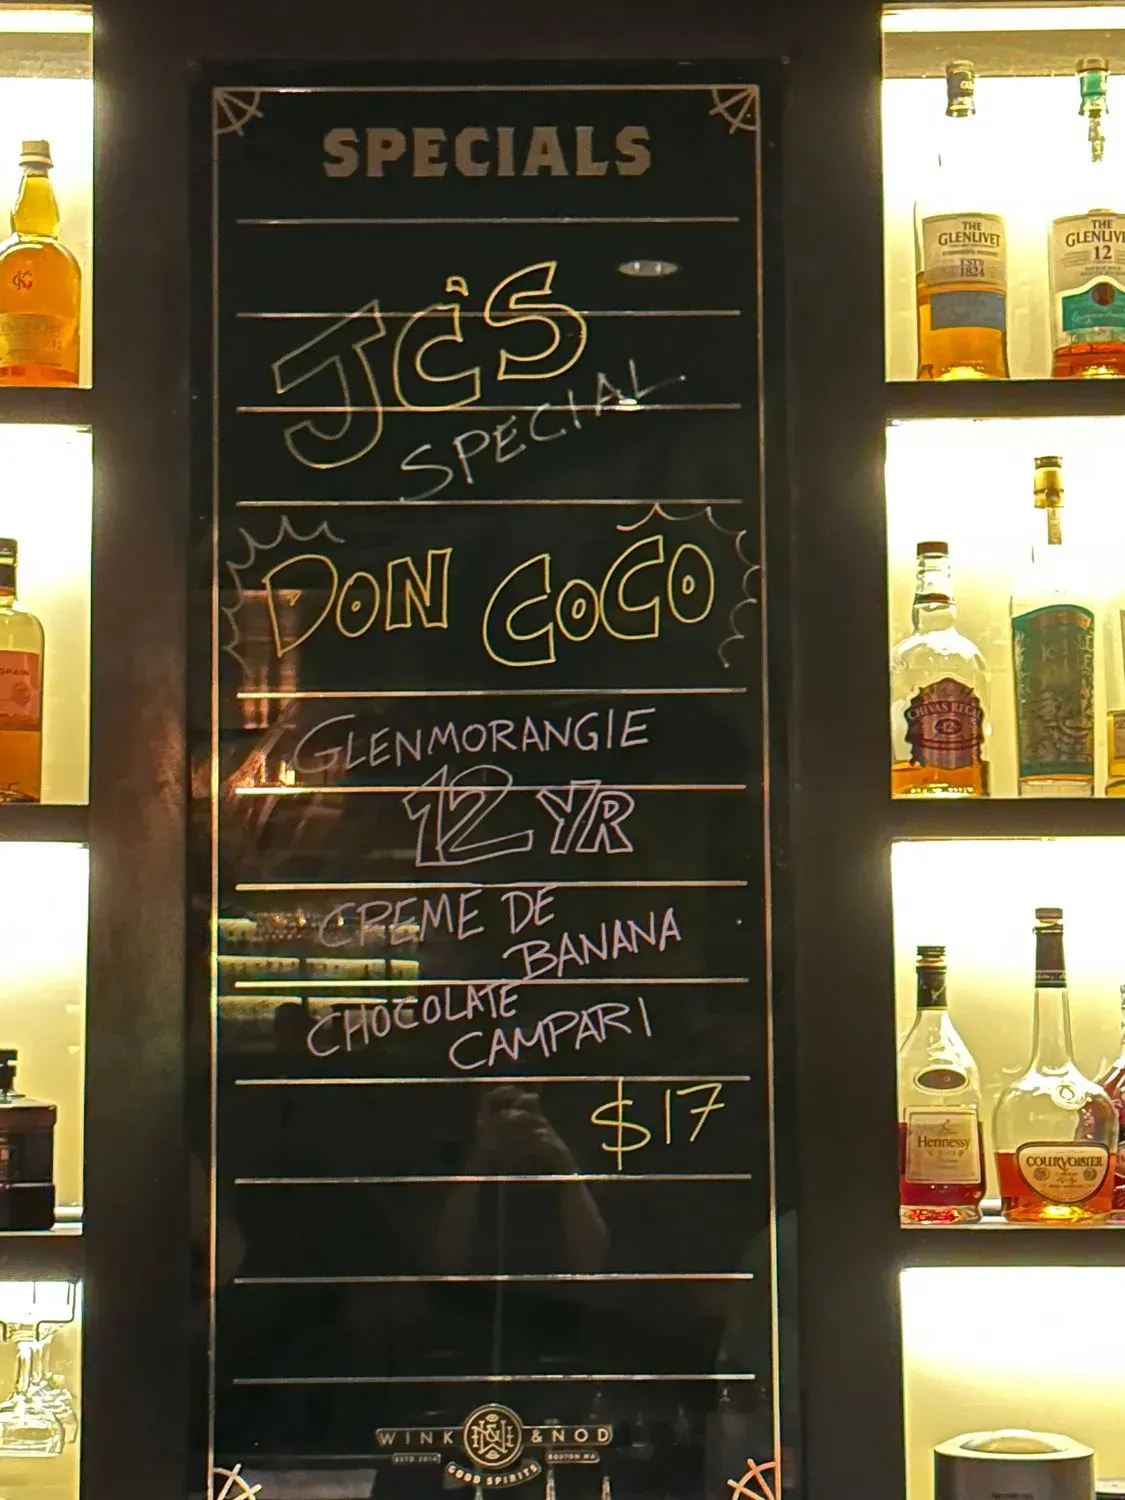 SPECIALS
JC'S
SPECIAL
DON COCO
GLENMORANGIE
12 YR
CREME DE
BANANA
CHOCOLATE
CAMPARI
$17
WINK & NOD
ESTD. 2014
BOSTON MA
GOOD SPIRITS
THE
GLENLIVET
ESTD
1824
THE
GLENLIV
12
CHIVAS REGAL
12
GRAIN
Hennessy
V.S.O.P
COURVOISIER